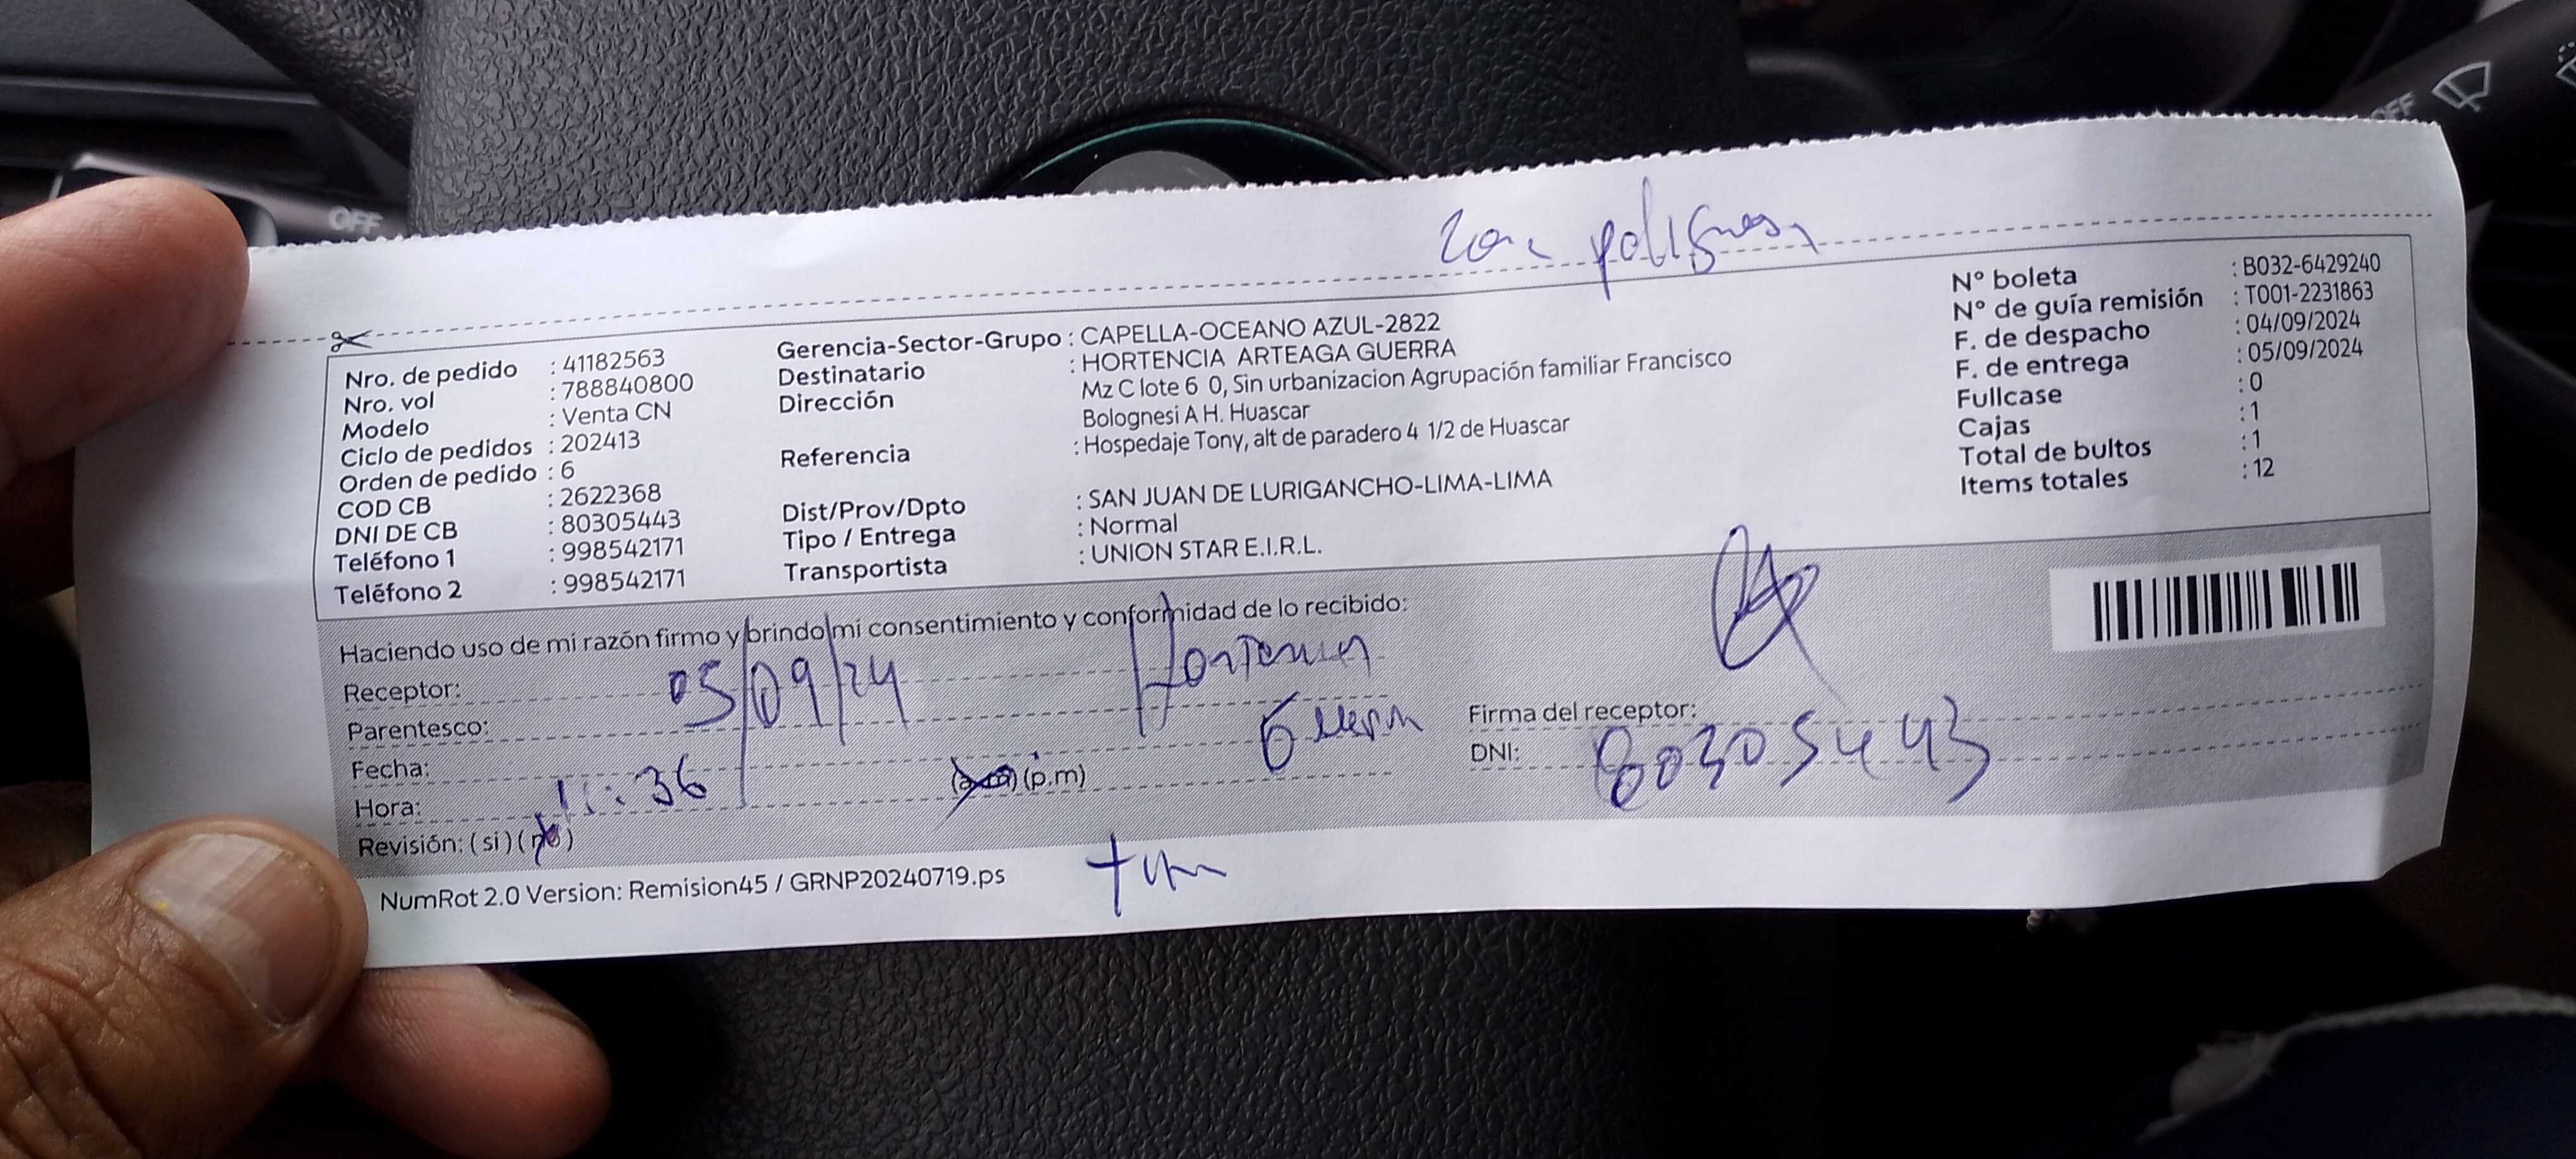 OFF
OFF
zona peligrosa
Nro. de pedido : 41182563
Nro. vol : 788840800
Modelo : Venta CN
Ciclo de pedidos : 202413
Orden de pedido : 6
COD CB : 2622368
DNI DE CB : 80305443
Teléfono 1 : 998542171
Teléfono 2 : 998542171
Gerencia-Sector-Grupo : CAPELLA-OCEANO AZUL-2822
Destinatario : HORTENCIA ARTEAGA GUERRA
Dirección Mz C lote 6 0, Sin urbanizacion Agrupación familiar Francisco
Bolognesi A H. Huascar
Referencia : Hospedaje Tony, alt de paradero 4 1/2 de Huascar
Dist/Prov/Dpto : SAN JUAN DE LURIGANCHO-LIMA-LIMA
Tipo / Entrega : Normal
Transportista : UNION STAR E.I.R.L.
N° boleta : B032-6429240
N° de guía remisión : T001-2231863
F. de despacho : 04/09/2024
F. de entrega : 05/09/2024
Fullcase : 0
Cajas : 1
Total de bultos : 1
Items totales : 12
Haciendo uso de mi razón firmo y brindo mi consentimiento y conformidad de lo recibido:
Receptor: 05/09/24 Hortencia
Parentesco: Guerra
Fecha:
Hora: 11:36 (a.m) (p.m)
Revisión: (si) (no)
Firma del receptor:
DNI: 80305443
NumRot 2.0 Version: Remision45 / GRNP20240719.ps